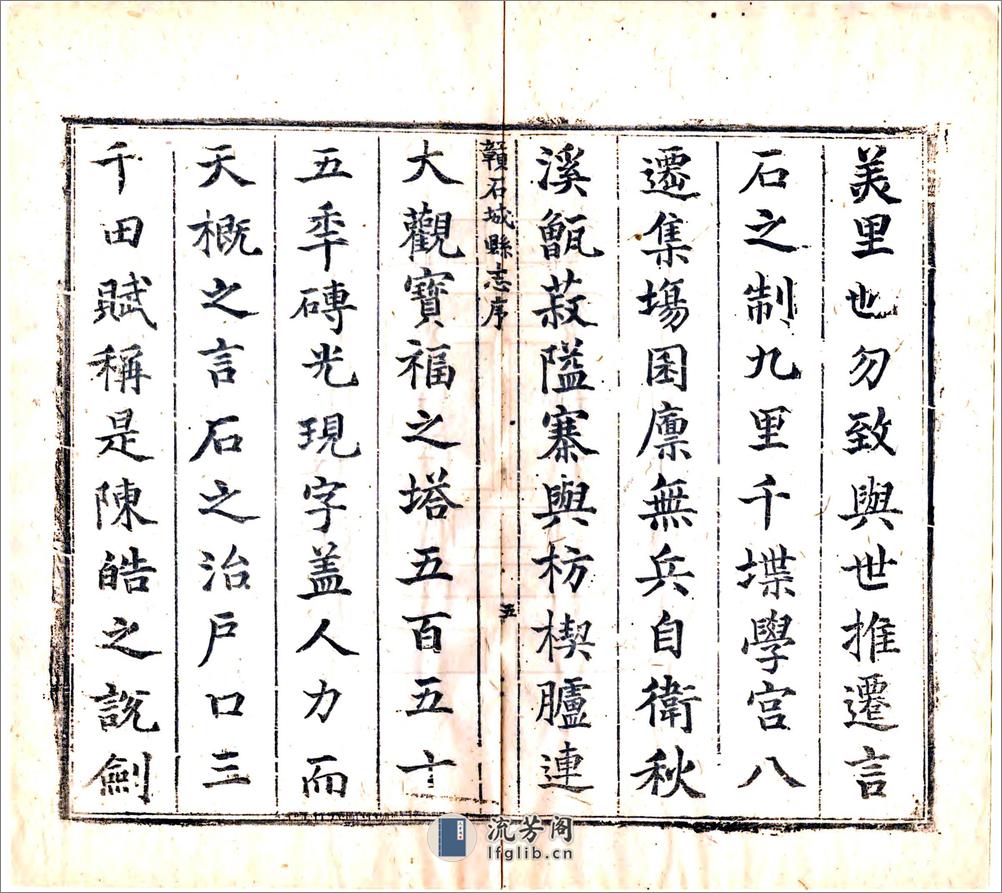 美里也勿致與世推遷言
石之制九里千堞學宮八
遷集塲囷廪無兵自衛秋
溪甑菽隘寨與枋楔臚連
贛石城縣志序
五
大觀寶福之塔五百五十
五秊磚光現字盖人力而
天概之言石之治戶口三
千田賦稱是陳皓之說劍
流芳阁
lfglib.cn